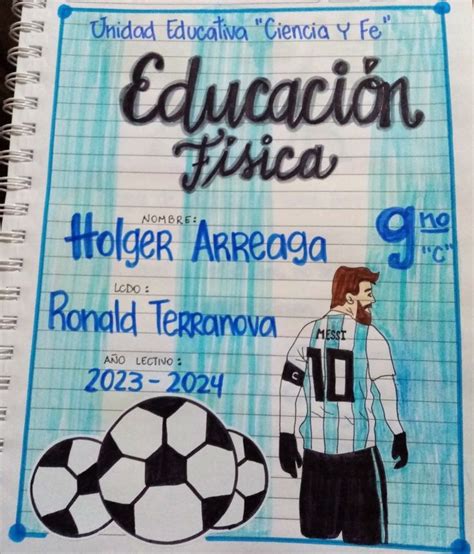 Unidad Educativa "Ciencia Y Fe"
Educación
Física
NOMBRE:
Holger ARREAGA
9no
"C"
LCDO:
Ronald TERRANOVA
AÑO LECTIVO:
2023-2024
MESSI
10
C